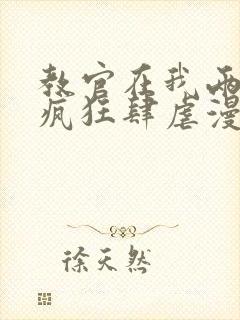 教官在我两
疯狂肆虐漫
徐天然